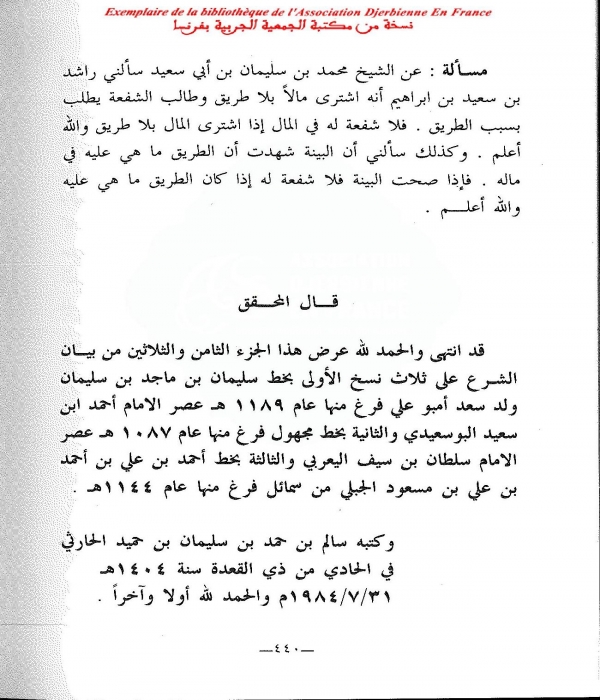 Exemplaire de la bibliothèque de l'Association Djerbienne En France
نسخة من مكتبة الجمعية الجربية بفرنسا
مسألة : عن الشيخ محمد بن سليمان بن أبي سعيد سألني راشد
بن سعيد بن ابراهيم أنه اشترى مالاً بلا طريق وطالب الشفعة يطلب
بسبب الطريق . فلا شفعة له في المال إذا اشترى المال بلا طريق والله
أعلم . وكذلك سألني أن البينة شهدت أن الطريق ما هي عليه في
ماله . فإذا صحت البينة فلا شفعة له إذا كان الطريق ما هي عليه
والله أعلــم .
قــال المحـقـق
قد انتهى والحمد لله عرض هذا الجزء الثامن والثلاثين من بيـان
الشـرع على ثلاث نسخ الأولى بخط سليمان بن ماجد بن سليمان
ولد سعد أمبو علي فرغ منها عام ١١٨٩ هـ عصر الامام أحمد ابن
سعيد البوسعيدي والثانية بخط مجهول فرغ منها عام ١٠٨٧ هـ عصر
الامام سلطان بن سيف اليعربي والثالثة بخط أحمد بن علي بن أحمد
بن علي بن مسعود الجبلي من سمائل فرغ منها عام ١١٤٤هـ .
وكتبه سالم بن حمد بن سليمان بن حميد الحارثي
في الحادي من ذي القعدة سنة ١٤٠٤هـ
١٩٨٤/٧/٣١م والحمد لله أولا وآخراً .
—٤٤٠—